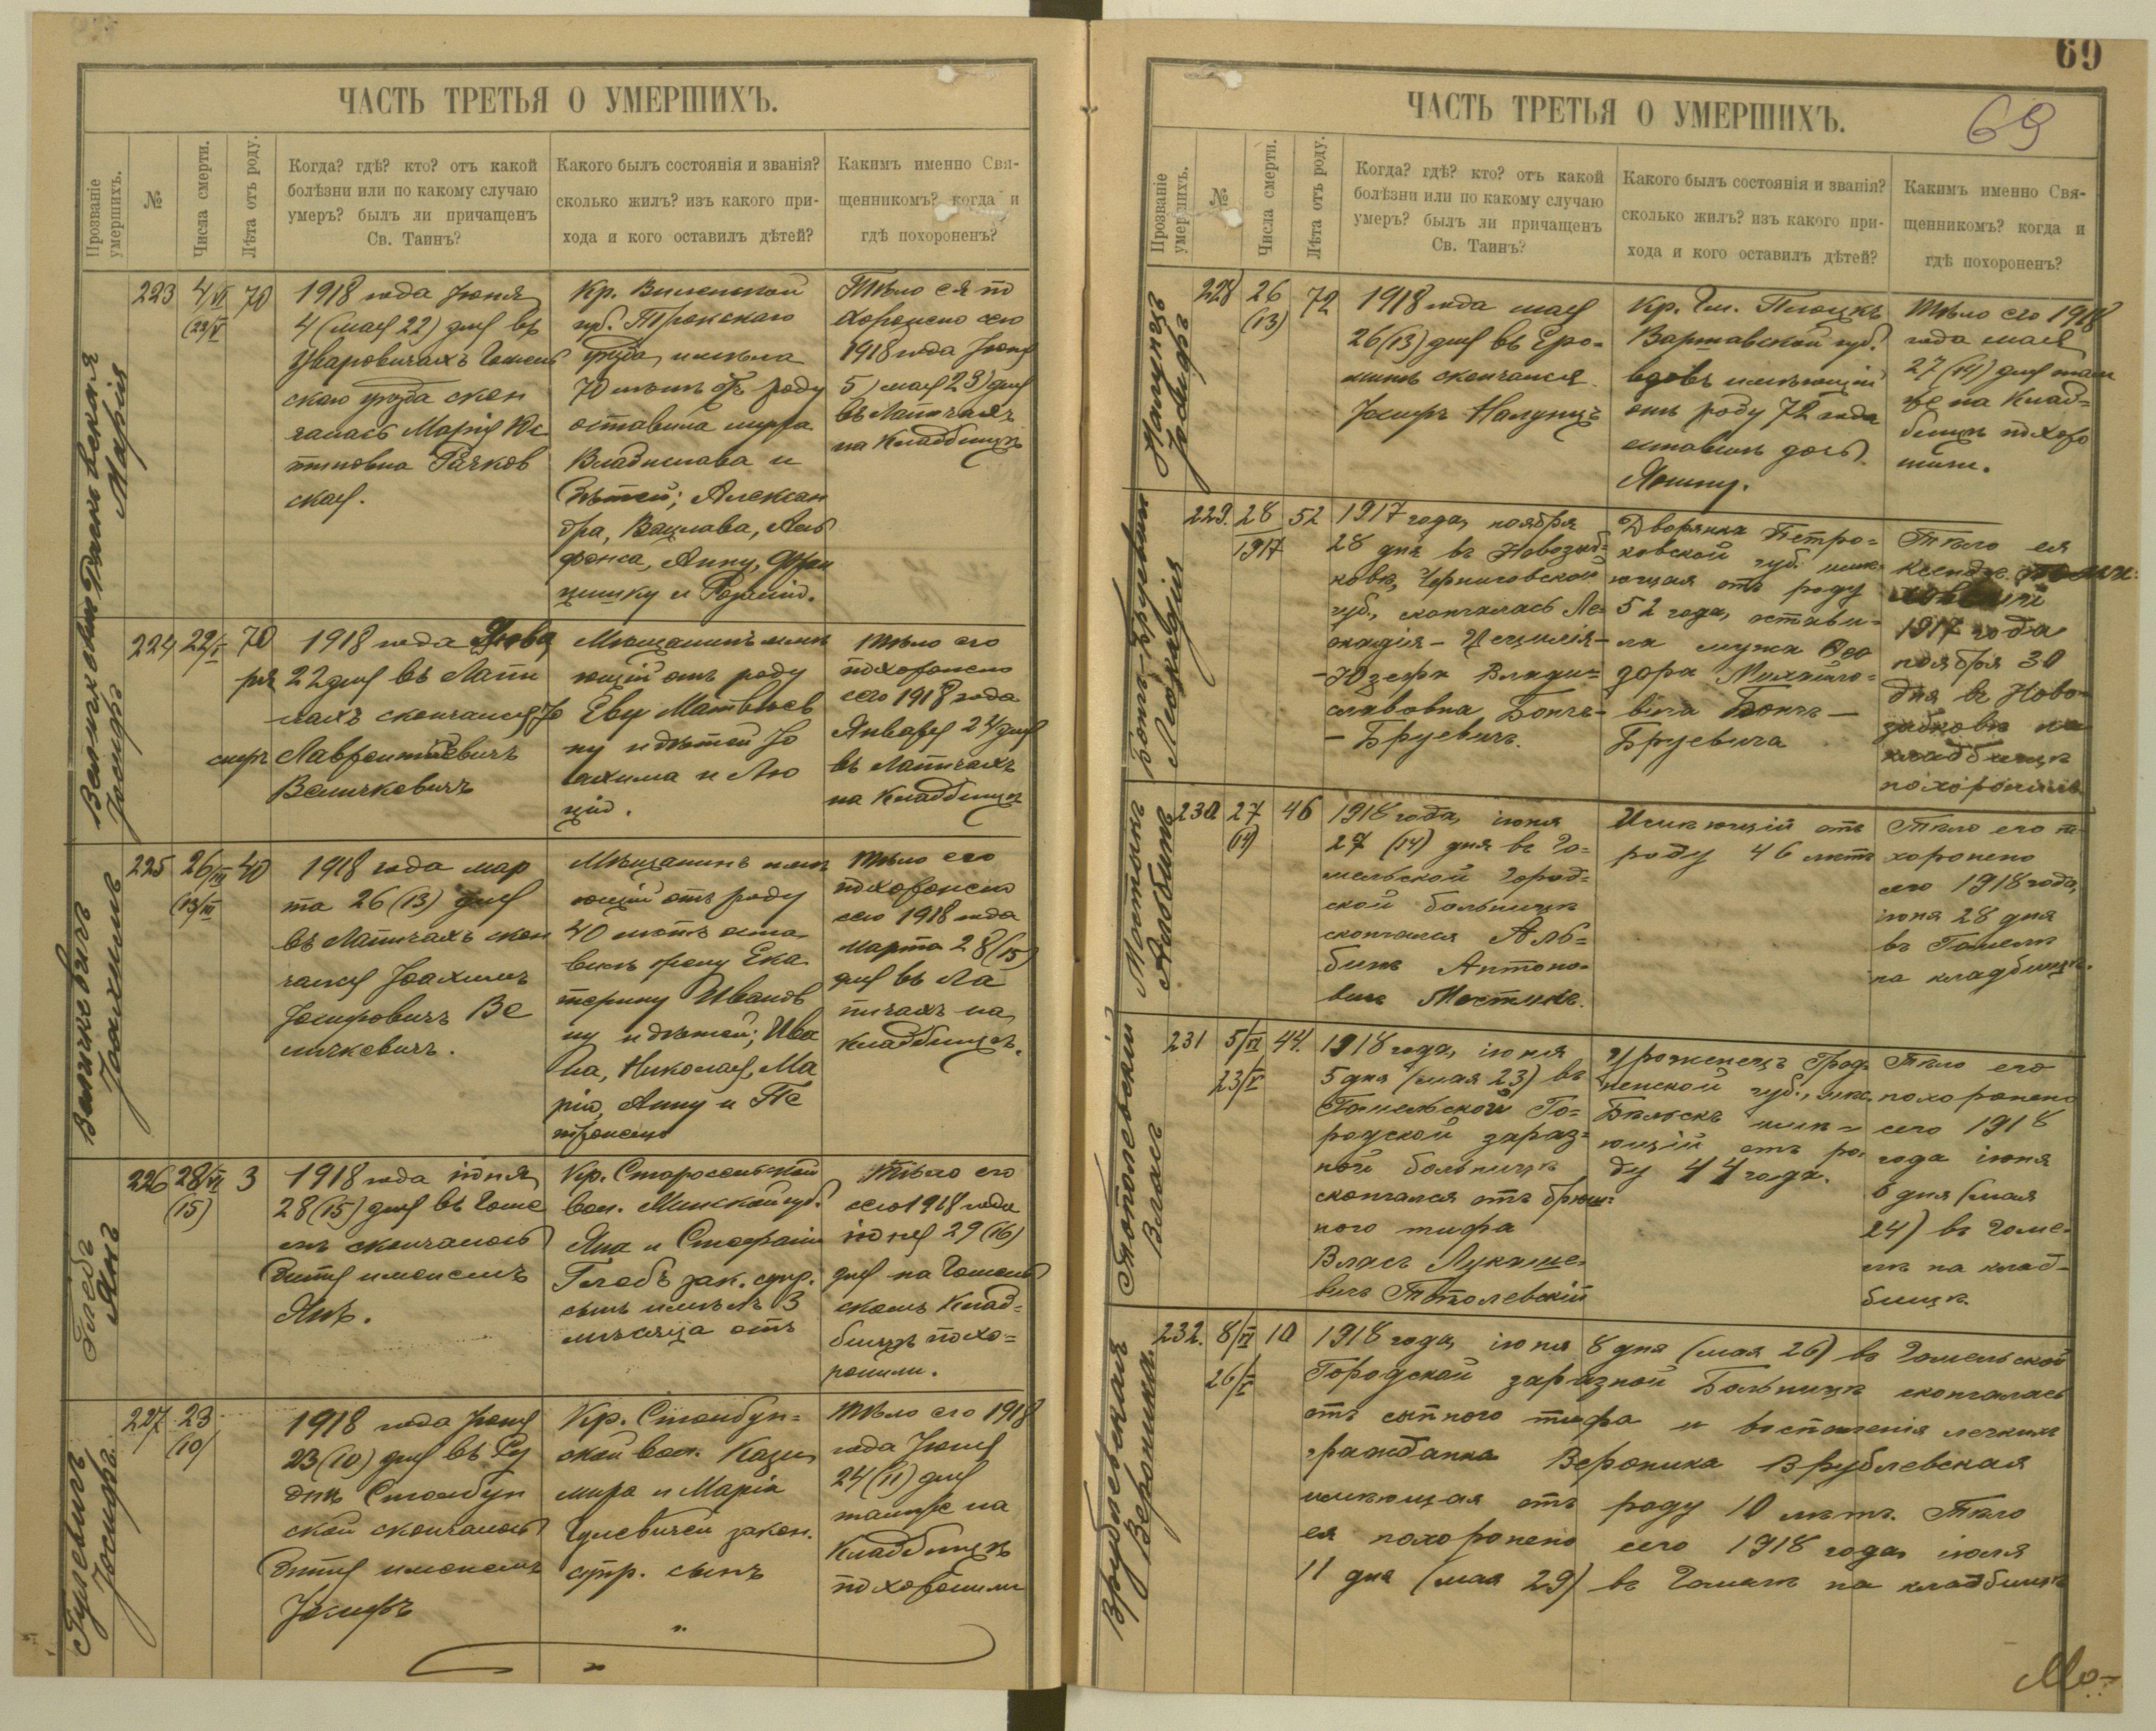 ЧАСТЬ ТРЕТЬЯ О УМЕРШИХЪ.
Прозваніе умершихъ.
№
Числа смерти.
Лѣта отъ роду.
Когда? гдѣ? кто? отъ какой
болѣзни или по какому случаю
умеръ? былъ ли причащенъ
Св. Таинъ?
Какого былъ состоянія и званія?
сколько жилъ? изъ какого при-
хода и кого оставилъ дѣтей?
Какимъ именно Свя-
щенникомъ? когда и
гдѣ похороненъ?
Марія
223
4/VI
(22/V
70
1918 года Іюня
4 (мая 22) дня въ
Уваровичахъ Гомель
скаго уѣзда скон
чалась Марія
Рачков
ская.
Кр. Виленской
губ. Трокскаго
уѣзда, имѣла
70 лѣтъ отъ роду
оставила мужа
Владислава и
дѣтей; Алексан
дра, Вацлава, Аль
фонса, Анну, Фран
цишку и
Тѣло ея по
хоронено сего
1918 года Іюня
5 (мая 23) дня
въ Лапичахъ
на кладбищѣ
Величковичъ
Іосифъ
224
22/I
70
1918 года Янва
ря 22 дня въ Лапи
чахъ скончался Іо
сифъ Лаврентіевичъ
Величковичъ
Мѣщанинъ имѣ
ющій отъ роду
Еву Матвѣев
ну и дѣтей Іо
ахима и Лю
цію.
Тѣло его
похоронено
сего 1918 года
Января 24 дня
въ Лапичахъ
на кладбищѣ
Величковичъ
Іоахимъ
225
26/III
(13/III
40
1918 года мар
та 26 (13) дня
въ Лапичахъ скон
чался Іоахимъ
Іосифовичъ Ве
личковичъ.
Мѣщанинъ имѣ
ющій отъ роду
40 лѣтъ оста
вилъ жену Ека
терину Иванов
ну и дѣтей; Ива
на, Николая, Ма
рію, Анну и Пе
тронелю
Тѣло его
похоронено
сего 1918 года
марта 28 (15)
дня въ Ла
пичахъ на
кладбищѣ.
Глебъ
Янъ
226
28/VI
(15)
3
1918 года іюня
28 (15) дня въ Гоме
лѣ скончалось
дитя именемъ
Янъ.
Кр. Старосельской
вол. Минской губ.
Яна и Стефаніи
Глебъ зак. супр.
сынъ имѣлъ 3
мѣсяца отъ
Тѣло его
сего 1918 года
іюня 29 (16)
дня на Гомель
скомъ клад=
бищѣ похо=
ронили.
Гулевичъ
Іосифъ
227
23
(10)
1918 года Іюня
23 (10) дня въ Ру
днѣ Столбун
ской скончалось
дитя именемъ
Іосифъ
Кр. Столбун=
ской вол. Кази
мира и Маріи
Гулевичей закон.
супр. сынъ
Тѣло его 1918
года Іюня
24 (11) дня
тамже на
кладбищѣ
похоронили
69
69
ЧАСТЬ ТРЕТЬЯ О УМЕРШИХЪ.
Прозваніе умершихъ.
№
Числа смерти.
Лѣта отъ роду.
Когда? гдѣ? кто? отъ какой
болѣзни или по какому случаю
умеръ? былъ ли причащенъ
Св. Таинъ?
Какого былъ состоянія и званія?
сколько жилъ? изъ какого при-
хода и кого оставилъ дѣтей?
Какимъ именно Свя-
щенникомъ? когда и
гдѣ похороненъ?
Налунцъ
Іосифъ
228
26
(13)
72
1918 года мая
26 (13) дня въ Еро=
минѣ скончался
Іосифъ Налунцъ
Кр. Гм. Плоцкъ
Варшавской губ.
вдовъ имѣющій
отъ роду 72 года
оставилъ дочь
Янину.
Тѣло его 1918
года мая
27 (14) дня там
же на клад=
бищѣ похоро
нили.
Бончъ-Бруевичъ
Леокадія
229.
28
1917
52
1917 года, ноября
28 дня въ Новозыб=
ковѣ, Черниговской
губ., скончалась Ле=
окадія - Цецилія-
-Юзефа Влади=
славовна Бончъ-
- Бруевичъ.
Дворянка Петро=
ковской губ. имѣ-
ющая отъ роду
52 года, остави=
ла мужа Ѳео
дора Михайло=
вича Бончъ-
Бруевича
Тѣло ея
ксендзъ
1917 года
ноября 30
дня въ Ново-
зыбковѣ на
кладбищѣ
похоронилъ
Мостыкъ
Альбинъ
230
27
(14)
46
1918 года, іюня
27 (14) дня въ Го=
мельской Город=
ской больницѣ
скончался Аль=
бинъ Антоно=
вичъ Мостыкъ.
Имѣющій отъ
роду 46 лѣтъ
Тѣло его по
хоронено
сего 1918 года,
іюня 28 дня
въ Гомелѣ
на кладбищѣ.
Тополевскій
Власъ
231
5/VI
23/V
44.
1918 года, іюня
5 дня (мая 23) въ
Гомельской Го=
родской зараз=
ной больницѣ
скончался отъ брюш=
ного тифа
Власъ Лукаше-
вичъ Тополевскій
Уроженецъ Грод-
ненской губ.,
Бѣльскъ имѣ=
ющій отъ ро-
ду 44 года.
Тѣло его
похоронено
сего 1918
года іюня
6 дня (мая
24) въ Гоме-
лѣ на клад-
бищѣ.
Врублевская
Вероника.
232.
8/VI
26/V
10
1918 года, іюня 8 дня (мая 26) въ Гомельской
Городской заразной Больницѣ скончалась
отъ сыпного тифа и воспаленія легкихъ
гражданка Вероника Врублевская
имѣющая отъ роду 10 лѣтъ. Тѣло
ея похоронено сего 1918 года іюля
11 дня (мая 29) въ Гомелѣ на кладбищѣ